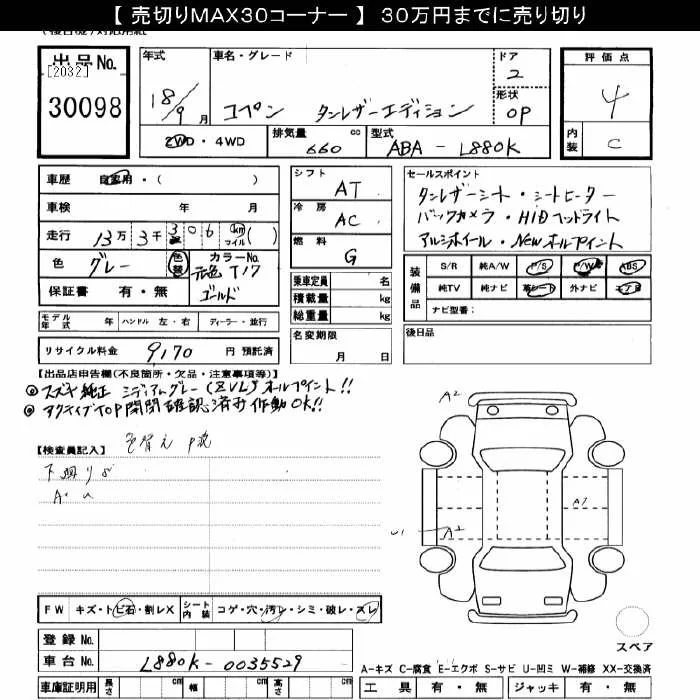 【 売切りMAX30コーナー 】 30万円までに売り切り
出品No.
[2032]
30098
年式
18/9 月
車名・グレード
コペン タンレザーエディション
ドア
2
形状
OP
評価点
4
内装
C
2WD・4WD
排気量 cc
660
型式
ABA - L880K
車歴 自家用・( )
車検 年 月
走行 13万 3千 306 km マイル( )
色 グレー 色替 カラーNo. 元色 T17
保証書 有・無 ゴールド
モデル年式 年 ハンドル 左・右 ディーラー・並行
リサイクル料金 9,170 円 預託済
シフト
AT
冷房
AC
燃料
G
乗車定員 名
積載量 kg
総重量 kg
名変期限
月 日
セールスポイント
タンレザーシート・シートヒーター
バックカメラ・HIDヘッドライト
アルミホイール・Newオールペイント
装備品
S/R 純A/W P/S P/W ABS
純TV 純ナビ 革シート 外ナビ エアB
ナビ型番:
後日品
【出品店申告欄(不良箇所・欠品・注意事項等)】
◎ スズキ純正 ミディアムグレー (ZVL) オールペイント!!
◎ アクティブTOP開閉確認済み 作動OK!!
【検査員記入】
色替え
下廻りS
A2
A1
U1
A2
FW キズ・トビ石・割レX
シート内装 コゲ・穴・汚レ・シミ・破レ・スレ
登録No.
車台No. L880K-0035529
車庫証明用 長さ cm 幅 cm 高さ cm
スペア
A-キズ C-腐食 E-エクボ S-サビ U-凹ミ W-補修 XX-交換済
工具 有・無 ジャッキ 有・無